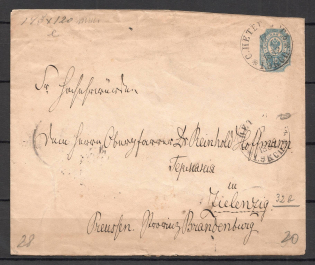 140 x 120
С.ПЕТЕР
Sr. Hochehrwürden
Dem Herrn Oberpfarrer Dr. Reinhold Hoffmann
Германия
in
Zielenzig
322
Preussen. Provinz Brandenburg
28
20